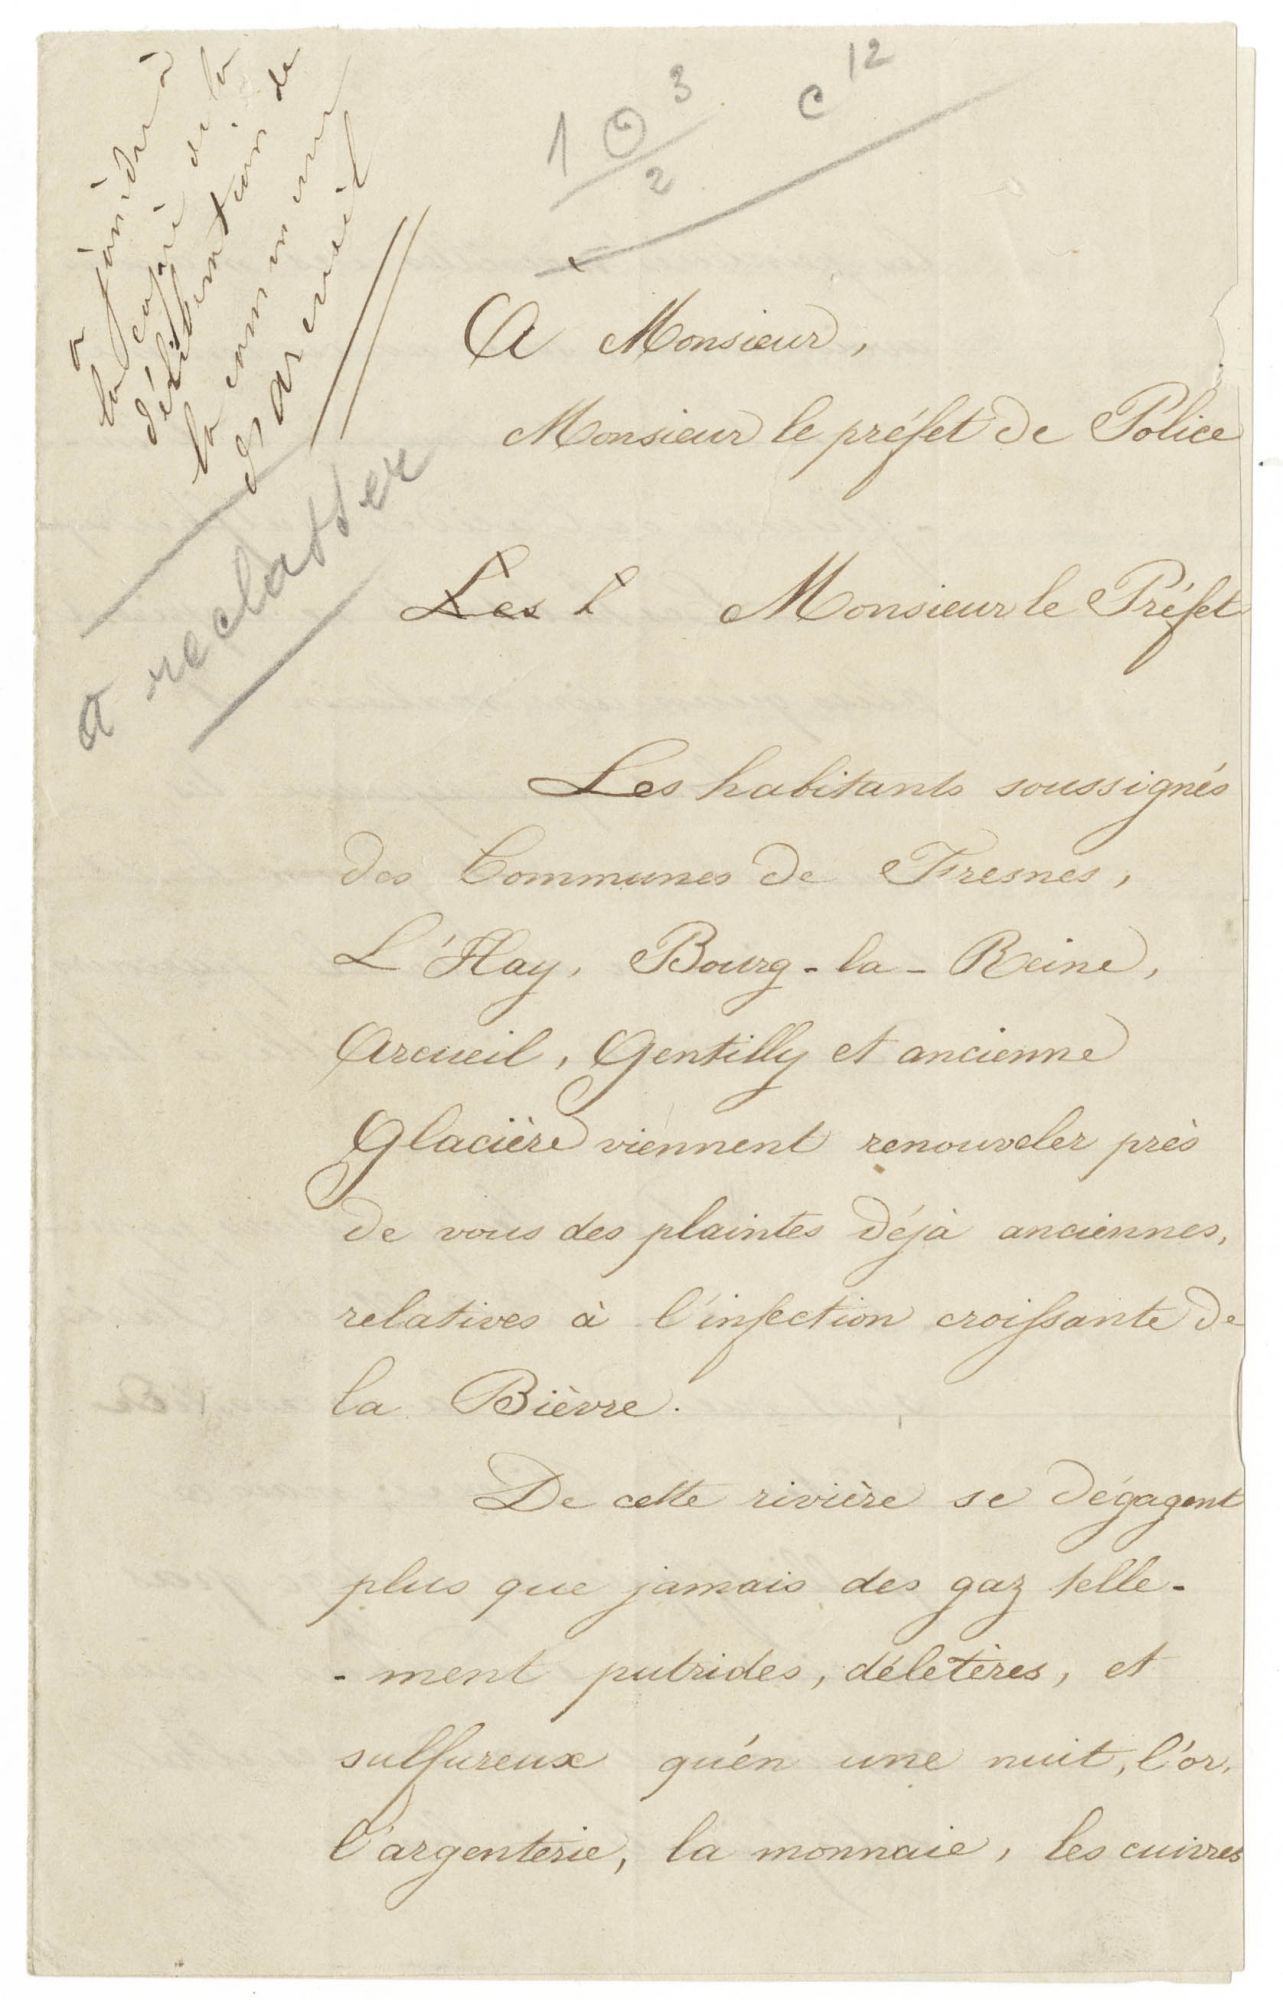 à joindre à
la copie de la
délibération de
la commune
d'arcueil
a reclasser
1 0 3/2
C 12
A Monsieur,
Monsieur le préfet de Police
Les l Monsieur le Préfet
Les habitants soussignés
des Communes de Fresnes,
L'Hay, Bourg-la-Reine,
Arcueil, Gentilly et ancienne
Glacière viennent renouveler près
de vous des plaintes déjà anciennes,
relatives à l'infection croissante de
la Bièvre.
De cette rivière se dégagent
plus que jamais des gaz telle-
-ment putrides, déletères, et
sulfureux qu'én une nuit, l'or,
l'argenterie, la monnaie, les cuivres